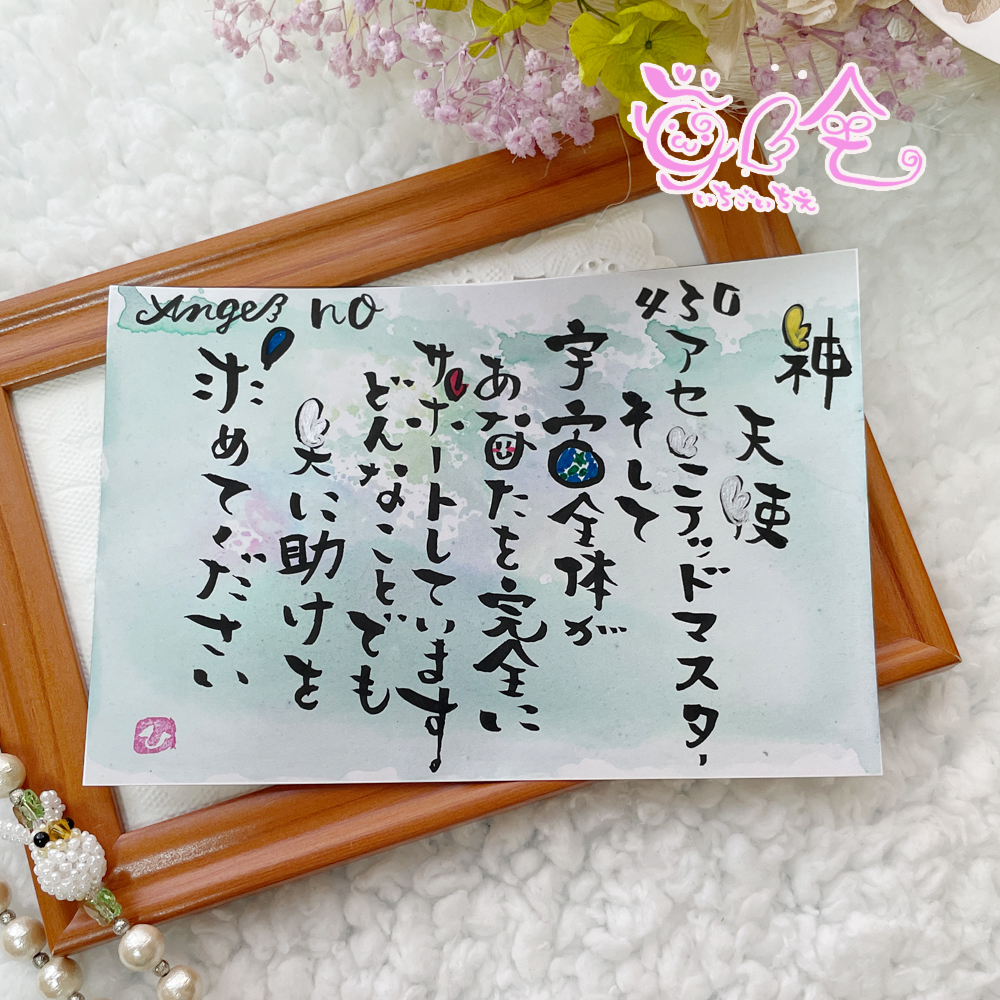 Angel no 430
神
天使
アセンデッドマスター
そして
宇宙全体が
あなたを完全に
サポートしています
どんなことでも
天に助けを
求めてください
いちごいちえ